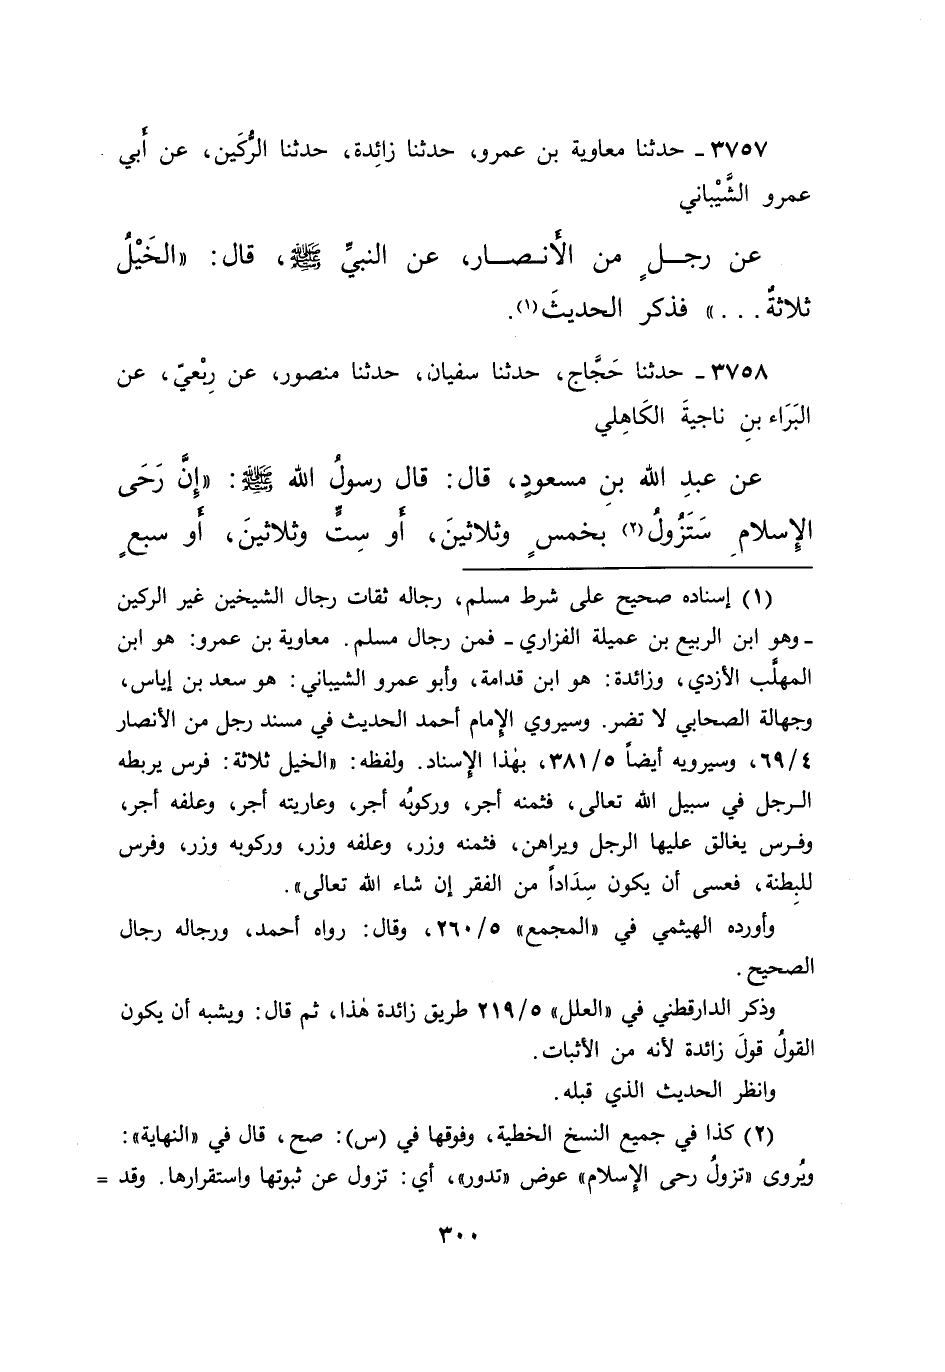 ٣٧٥٧ ـ حدثنا معاوية بن عمرو، حدثنا زائِدة، حدثنا الرُّكَين، عن أَبي
عمرو الشَّيْباني
عن رجـــلٍ من الأَنــصــار، عن النبيِّ ﷺ، قال: «الخَيْلُ
ثلاثةٌ...» فذكر الحديثَ(١).
٣٧٥٨ ـ حدثنا حَجَّاج، حدثنا سفيان، حدثنا منصور، عن رِبْعيّ، عن
البَرَاء بنِ ناجيةَ الكَاهِلي
عن عبدِ الله بنِ مسعودٍ، قال: قال رسولُ الله ﷺ: «إِنَّ رَحَى
الإِسلامِ سَتَزُولُ(٢) بخمسٍ وثلاثينَ، أَو سِتٍّ وثلاثينَ، أَو سبعٍ
(١) إسناده صحيح على شرط مسلم، رجاله ثقات رجال الشيخين غير الركين
ـ وهو ابن الربيع بن عميلة الفزاري ـ فمن رجال مسلم. معاوية بن عمرو: هو ابن
المهلَّب الأزدي، وزائدة: هو ابن قدامة، وأبو عمرو الشيباني: هو سعد بن إياس،
وجهالة الصحابي لا تضر. وسيروي الإِمام أحمد الحديث في مسند رجل من الأنصار
٦٩/٤، وسيرويه أيضاً ٣٨١/٥، بهٰذا الإِسناد. ولفظه: «الخيل ثلاثة: فرس يربطه
الرجل في سبيل الله تعالى، فثمنه أجر، وركوبُه أجر، وعاريته أجر، وعلفه أجر،
وفرس يغالق عليها الرجل ويراهن، فثمنه وزر، وعلفه وزر، وركوبه وزر، وفرس
للبِطنة، فعسى أن يكون سِدَاداً من الفقر إن شاء الله تعالى».
وأورده الهيثمي في «المجمع» ٢٦٠/٥، وقال: رواه أحمد، ورجاله رجال
الصحيح.
وذكر الدارقطني في «العلل» ٢١٩/٥ طريق زائدة هٰذا، ثم قال: ويشبه أن يكون
القولُ قولَ زائدة لأنه من الأثبات.
وانظر الحديث الذي قبله.
(٢) كذا في جميع النسخ الخطية، وفوقها في (س): صح، قال في «النهاية»:
ويُروى «تزولُ رحى الإِسلام» عوض «تدور»، أي: تزول عن ثبوتها واستقرارها. وقد =
٣٠٠